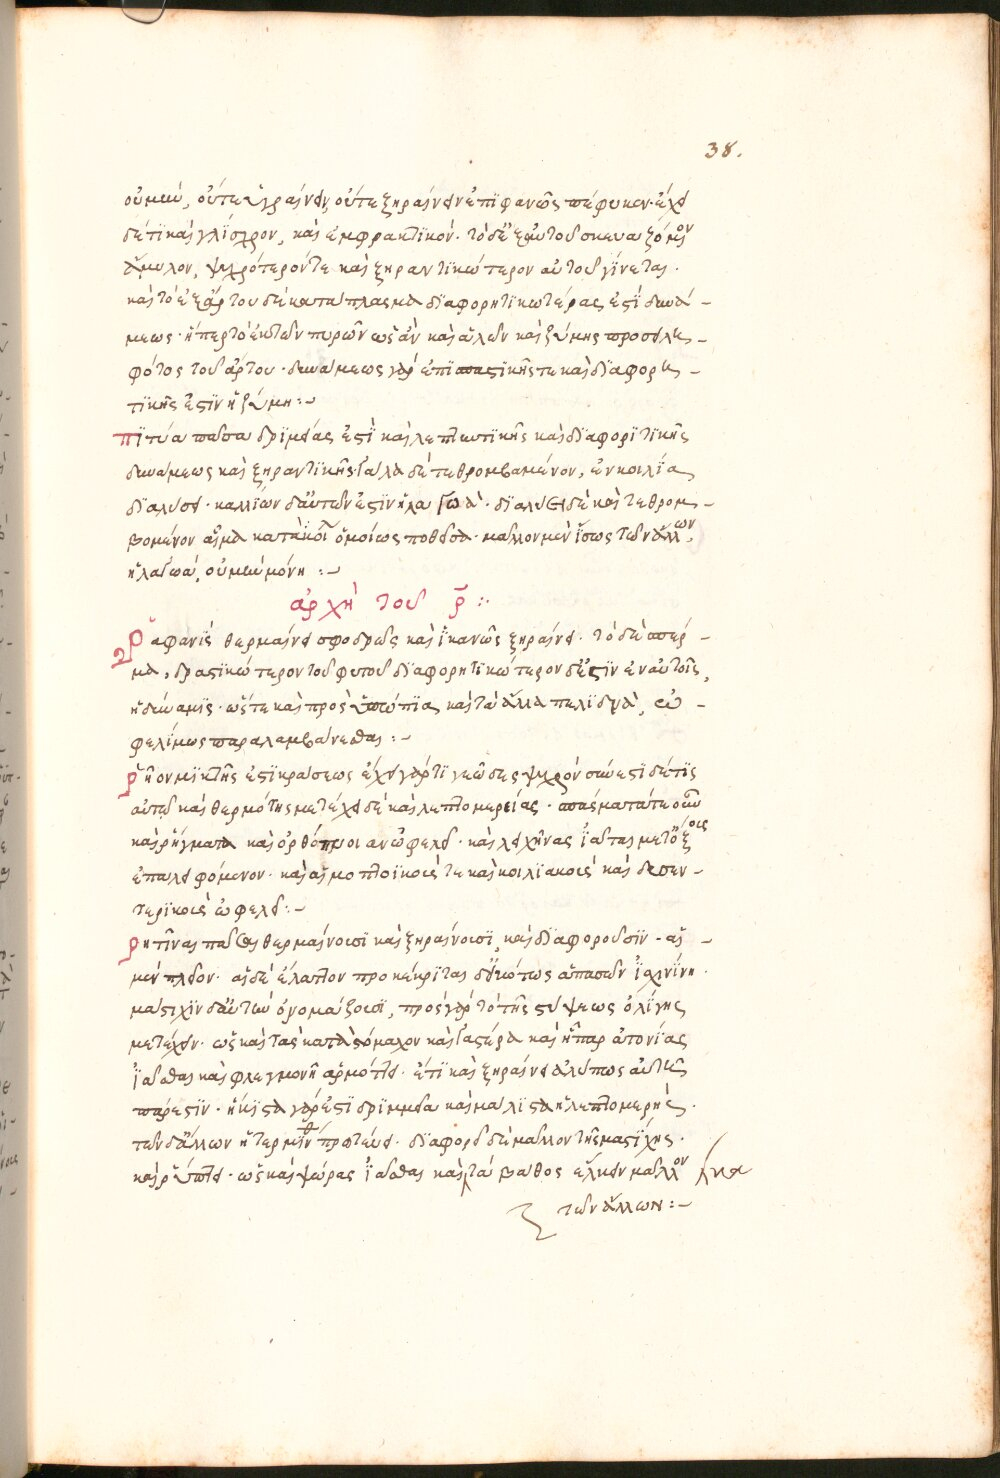 38.
οὐ μὴν, οὔτε ὑγραίνειν, οὔτε ξηραίνειν ἐπιφανῶς πέφυκεν· ἔχει
δέ τι καὶ γλίσχρον, καὶ ἐμφρακτικόν· τὸ δὲ ἐξ αὐτοῦ σκευαζόμενον
ἄμυλον, ψυχρότερόν τε καὶ ξηραντικώτερον αὐτοῦ γίνεται·
καὶ τὸ ἐξ ἄρτου δὲ κατάπλασμα διαφορητικωτέρας ἐστὶ δυνά-
μεως· ἤπερ τὸ ἐκ τῶν πυρῶν ὡς ἂν καὶ ἁλῶν καὶ ζύμης προσειλη-
φότος τοῦ ἄρτου· δυνάμεως γὰρ ἐπισπαστικῆς τε καὶ διαφορη-
τικῆς ἐστὶν ἡ ζύμη:~
πιτύα πᾶσα δριμείας ἐστὶ καὶ λεπτυντικῆς καὶ διαφοριτικῆς
δυνάμεως καὶ ξηραντικῆς· γάλα δὲ τεθρομβωμένον, ἐν κοιλία
διαλύει· καλλίων δ' αὐτῶν ἐστὶν ἡ λαγωά· διαλύει δὲ καὶ τεθρομ-
βομένον αἷμα κατὰ κοι ὁμοίως ποθεῖσα· μᾶλλον μὲν ἴσως τῶν ἄλλων,
ἡ λαγωά, οὐ μὴν μόνη :~
ἀρχὴ τοῦ ρ :·
Ῥαφανὶς θερμαίνει σφοδρῶς καὶ ἱκανῶς ξηραίνει· τὸ δὲ σπέρ-
μα, δραστικώτερον τοῦ φυτοῦ διαφορητικώτερον δ' ἐστὶν ἐν αὐτοῖς,
ἡ δύναμις· ὥστε καὶ πρὸς ὑπώπια καὶ τὰ ἄλλα πελιδνὰ, ὠ-
φελίμως παραλαμβάνεσθαι :~
ῥῆον μικτῆς ἐστὶ κράσεως ἔχει γάρ τι γεῶδες ψυχρὸν
αὐτῶ καὶ θερμότης μετέχει δὲ καὶ λεπτομερείας· σπάσματά τε οὖν
καὶ ῥήγματα καὶ ὀρθόπνοιαν ὠφελεῖ· καὶ λειχῆνας ἰᾶται μετ' ὄξους
ἐπαλειφόμενον· καὶ αἱμοπτοϊκοῖς τε καὶ κοιλιακοῖς καὶ δεσεν-
τερικοῖς ὠφελεῖ:~
ῥητῖναι πᾶσαι θερμαίνουσι καὶ ξηραίνουσι, καὶ διαφοροῦσιν· αἱ -
μὲν πλεῖον· αἱ δὲ ἔλαττον προκέκριται δ' εἰκότως ἁπασῶν ἡ σχινίνη·
μαστίχιν δ' αὐτὴν ὀνομάζουσι, πρὸς γὰρ τὸ τῆς στύψεως ὀλίγης
μετέχειν· ὡς καὶ τὰς κατὰ στόμαχον καὶ γαστέρα καὶ ἧπαρ ἀτονίας
ἰᾶσθαι καὶ φλεγμονῆ ἁρμόττει· ἔτι καὶ ξηραίνει ἀλύπως αὐτῶ
πάρεστιν· ἥκιστα γάρ ἐστι δριμμεῖα καὶ μάλιστα ἡ λεπτομερής·
τῶν δ' ἄλλων ἡ τερμινθ πρωτεύει· διαφορεῖ δὲ μᾶλλον τῆς μαστίχης·
καὶ ῥύπτει· ὡς καὶ ψώρας ἰᾶσθαι καὶ τὰ βάθος ἕλκειν μᾶλλον
τῶν ἄλλων :~